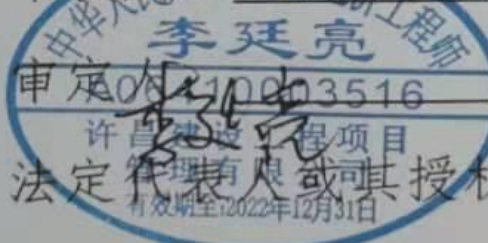 中华人民
工程师
李廷亮
审定人
003516
许昌建设工程项目
管理有限公司
法定代表人或其授权
有效期至:2022年12月31日